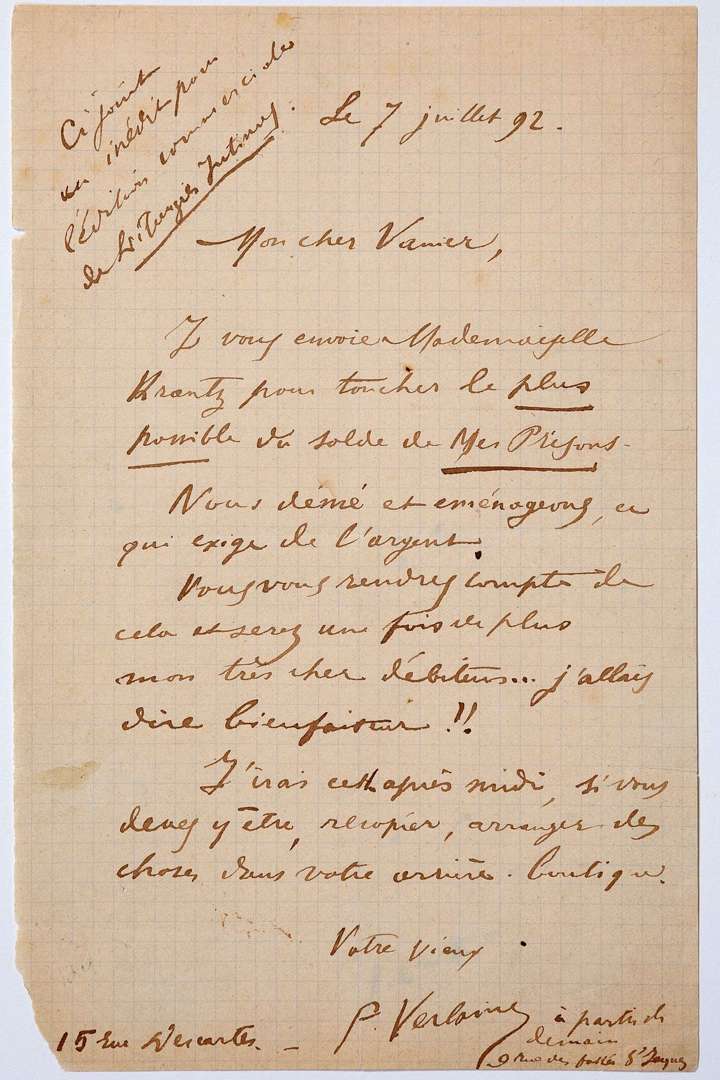 Ci joint
un inédit pour
l'édition commerciale
de Liturgies Intimes.
Le 7 juillet 92.
Mon cher Vanier,
J vous envoie Mademoiselle
Krantz pour toucher le plus
possible du solde de Mes Prisons.
Nous démé et eménageons, ce
qui exige de l'argent.
Vous vous rendrez compte de
cela et serez une fois de plus
mon très cher débiteur... j'allais
dire bienfaiteur !!
J'irais cett après midi, si vous
devez y être, recopier, arranger des
choses dans votre arrière-boutique.
Votre vieux
P. Verlaine
15 rue Descartes. _
à partir de
demain
9 rue des fossés St Jacques